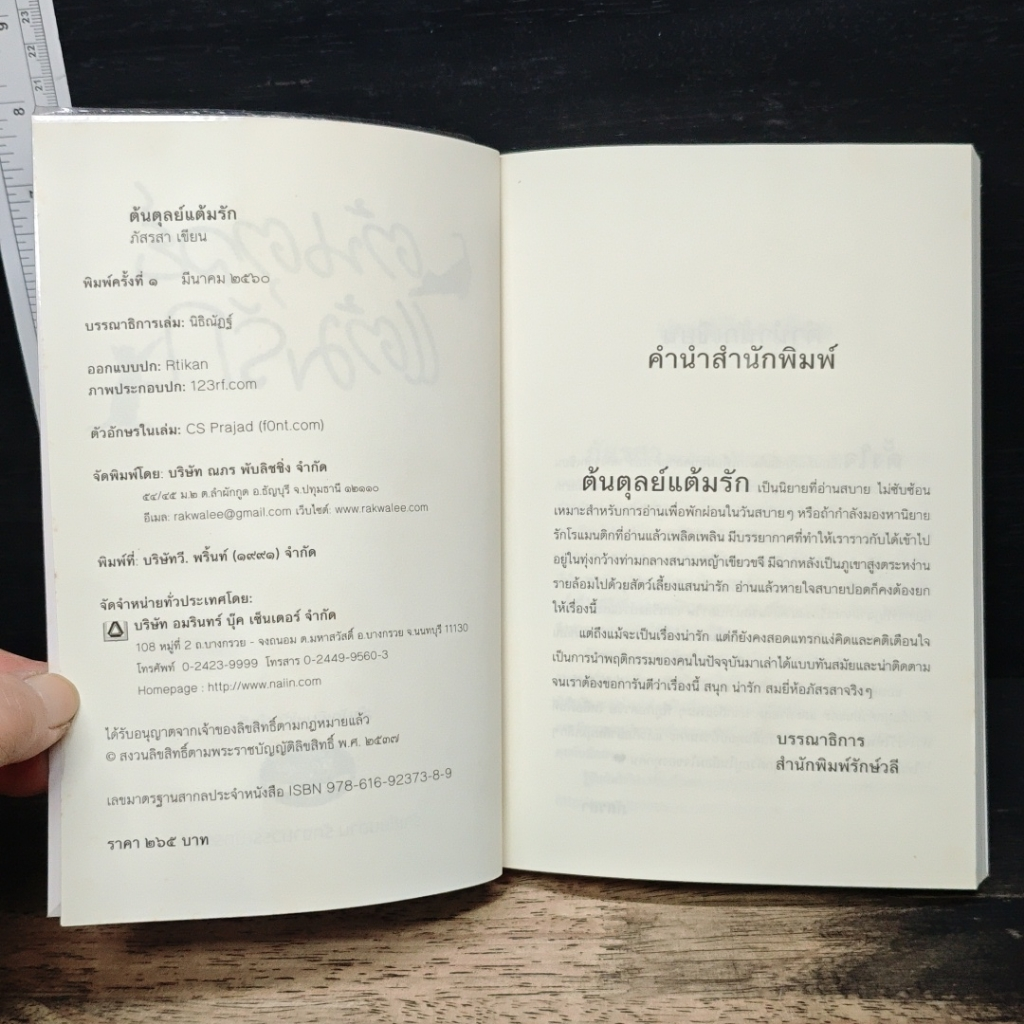 ต้นตุลย์แต้มรัก
ภัสรสา เขียน
พิมพ์ครั้งที่ ๑ มีนาคม ๒๕๖๐
บรรณาธิการเล่ม: นิธิณัฏฐ์
ออกแบบปก: Rtikan
ภาพประกอบปก: 123rf.com
ตัวอักษรในเล่ม: CS Prajad (f0nt.com)
จัดพิมพ์โดย: บริษัท ณภร พับลิชชิ่ง จำกัด
๕๔/๔๕ ม.๒ ต.ลำผักกูด อ.ธัญบุรี จ.ปทุมธานี ๑๒๑๑๐
อีเมล: rakwalee@gmail.com เว็บไซต์: www.rakwalee.com
พิมพ์ที่: บริษัทวี. พริ้นท์ (๑๙๙๑) จำกัด
จัดจำหน่ายทั่วประเทศโดย:
บริษัท อมรินทร์ บุ๊ค เซ็นเตอร์ จำกัด
108 หมู่ที่ 2 ถ.บางกรวย - จงถนอม ต.มหาสวัสดิ์ อ.บางกรวย จ.นนทบุรี 11130
โทรศัพท์ 0-2423-9999 โทรสาร 0-2449-9560-3
Homepage : http://www.naiin.com
ได้รับอนุญาตจากเจ้าของลิขสิทธิ์ตามกฎหมายแล้ว
© สงวนลิขสิทธิ์ตามพระราชบัญญัติลิขสิทธิ์ พ.ศ. ๒๕๓๗
เลขมาตรฐานสากลประจำหนังสือ ISBN 978-616-92373-8-9
ราคา ๒๖๕ บาท
คำนำสำนักพิมพ์
ต้นตุลย์แต้มรัก เป็นนิยายที่อ่านสบาย ไม่ซับซ้อน
เหมาะสำหรับการอ่านเพื่อพักผ่อนในวันสบายๆ หรือถ้ากำลังมองหานิยาย
รักโรแมนติกที่อ่านแล้วเพลิดเพลิน มีบรรยากาศที่ทำให้เราราวกับได้เข้าไป
อยู่ในทุ่งกว้างท่ามกลางสนามหญ้าเขียวขจี มีฉากหลังเป็นภูเขาสูงตระหง่าน
รายล้อมไปด้วยสัตว์เลี้ยงแสนน่ารัก อ่านแล้วหายใจสบายปอดก็คงต้องยก
ให้เรื่องนี้
แต่ถึงแม้จะเป็นเรื่องน่ารัก แต่ก็ยังคงสอดแทรกแง่คิดและคติเตือนใจ
เป็นการนำพฤติกรรมของคนในปัจจุบันมาเล่าได้แบบทันสมัยและน่าติดตาม
จนเราต้องขอการันตีว่าเรื่องนี้ สนุก น่ารัก สมยี่ห้อภัสรสาจริงๆ
บรรณาธิการ
สำนักพิมพ์รักษ์วลี